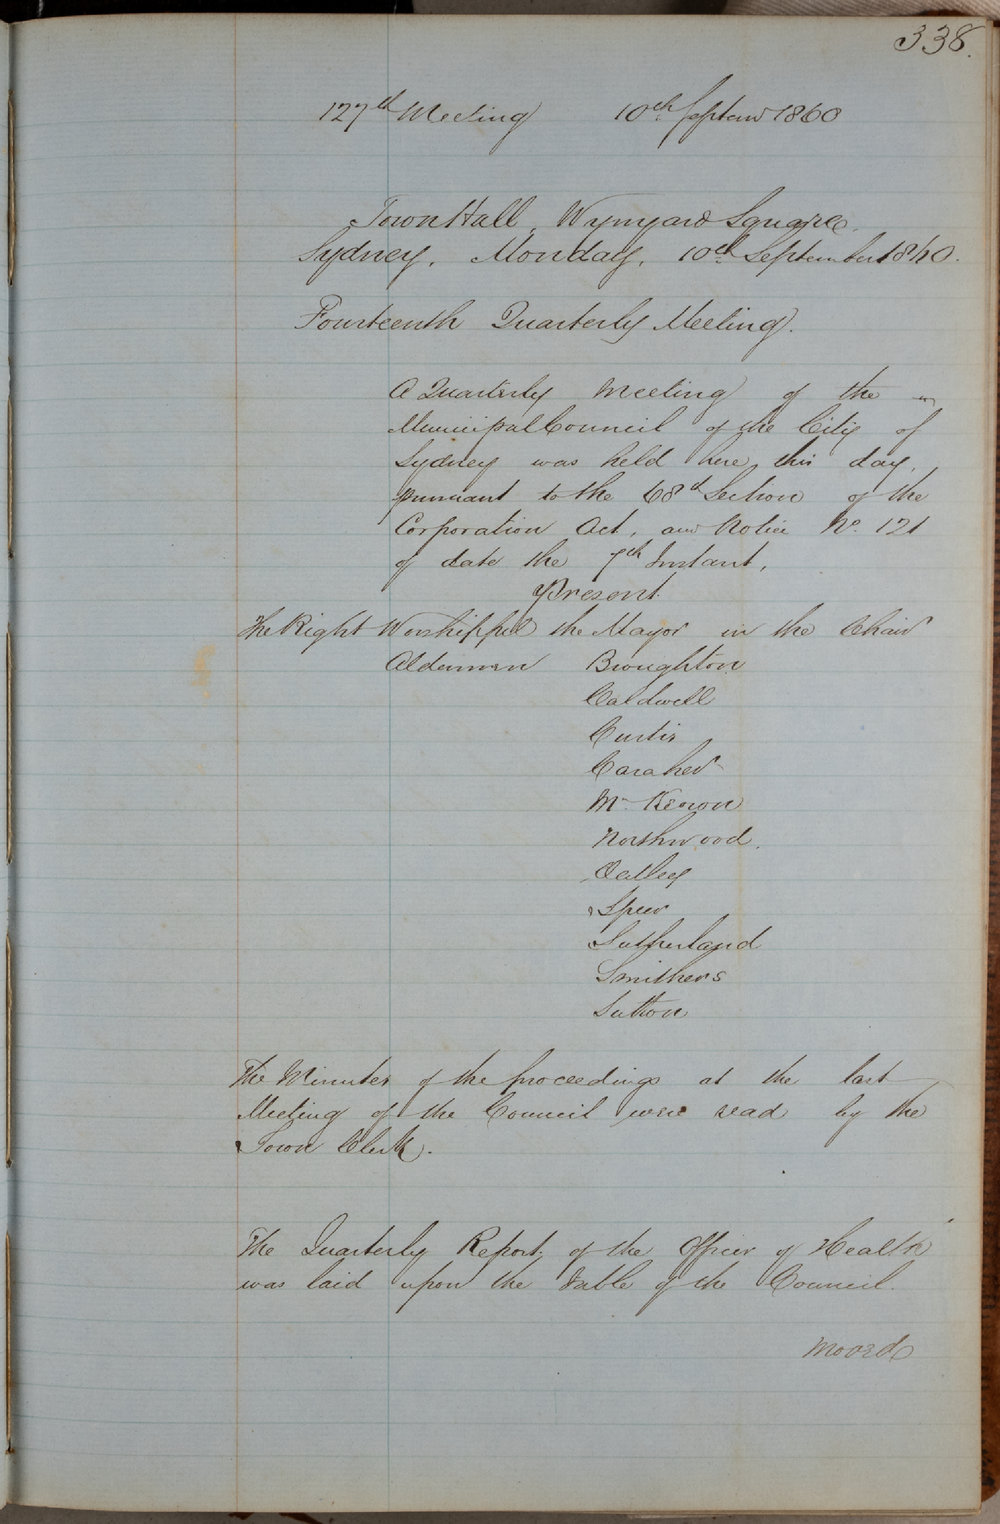 338.
127th Meeting 10th Septemr 1860
Town Hall, Wynyard Square
Sydney, Monday, 10th September 1860.
Fourteenth Quarterly Meeting.
A Quarterly Meeting of the
Municipal Council of the City of
Sydney was held here this day,
pursuant to the 68th Section of the
Corporation Act, and Notice No. 121
of date the 7th Instant,
Present.
The Right Worshipful the Mayor in the Chair
Aldermen Broughton
Caldwell
Curtis
Caraher
McKeown
Northwood.
Oatley
Speer
Sutherland
Smithers
Sutton
The Minutes of the proceedings at the last
Meeting of the Council were read by the
Town Clerk.
The Quarterly Report of the Officer of Health
was laid upon the table of the Council.
Moved